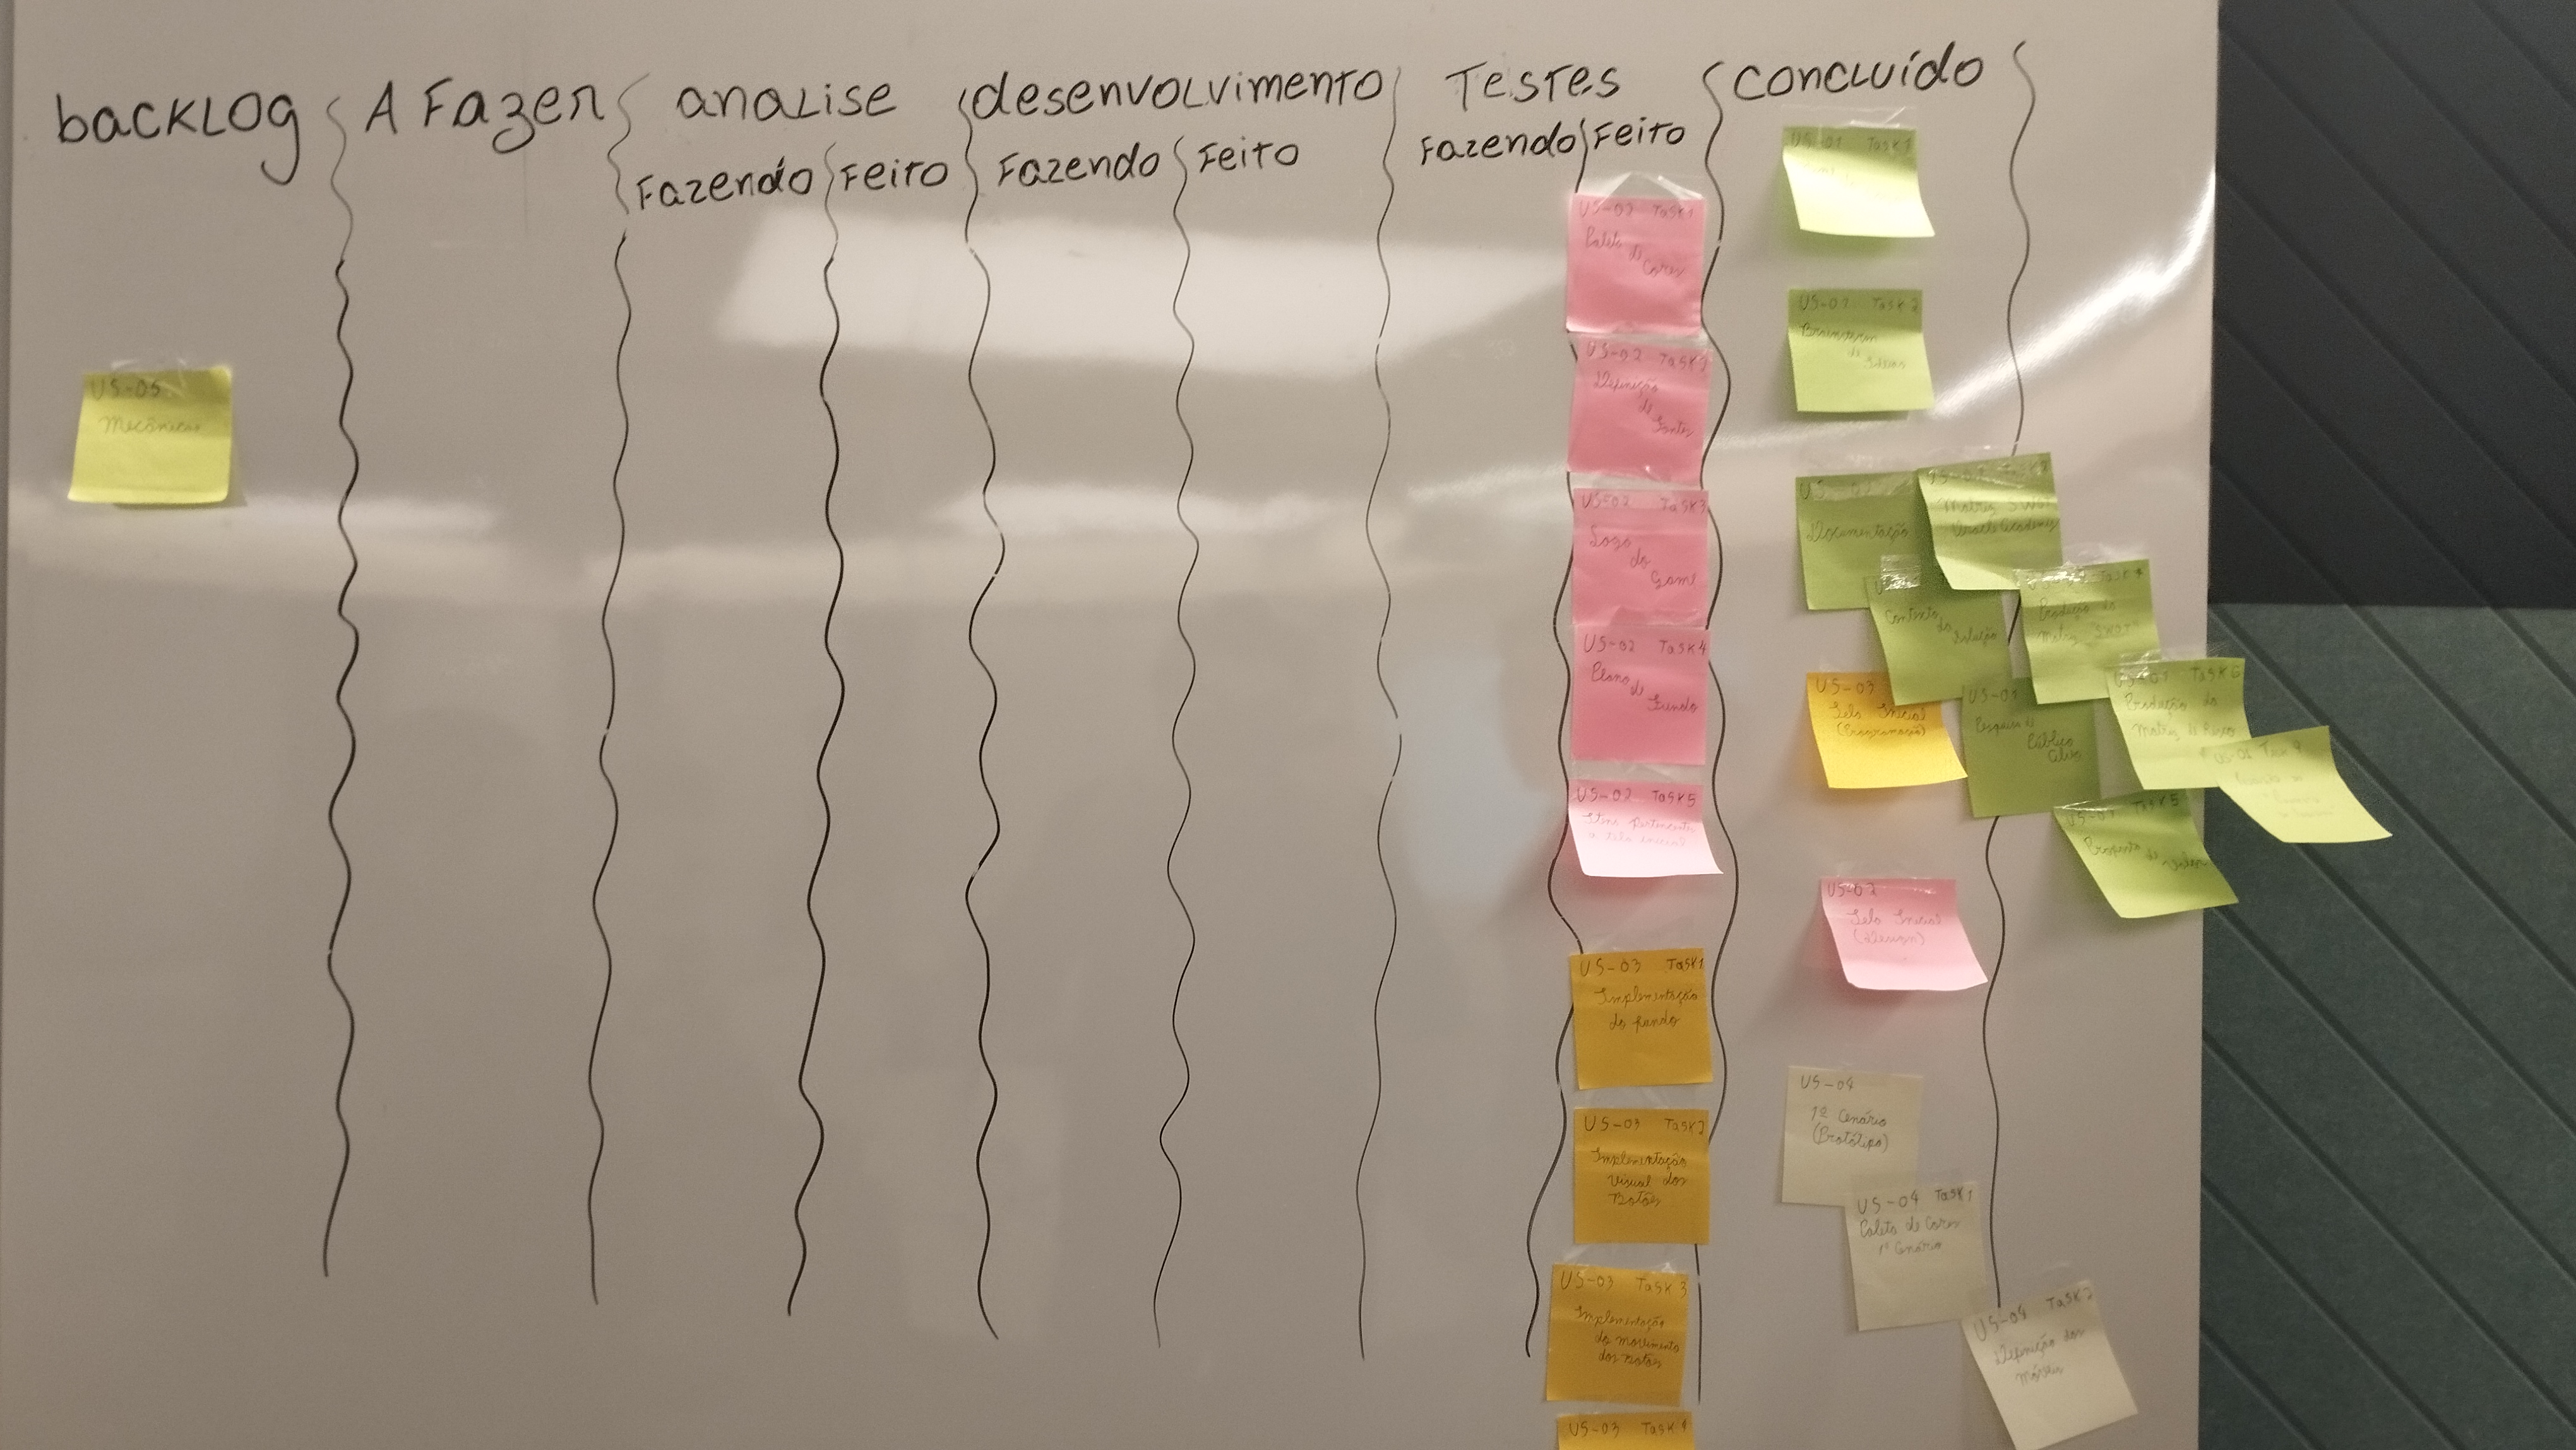 backlog
A Fazer
analise
desenvolvimento
Testes
concluído
Fazendo
Feito
Fazendo
Feito
Fazendo
Feito
US-05
Mecânicas
US-02 Task1
Paleta
de
Cores
US-02 Task2
Definição
de
Fontes
US-02 Task3
Logo
do
Game
US-02 Task4
Plano
de
Fundo
US-02 Task5
Itens Pertencentes
a tela inicial
US-03 Task1
Implementação
do fundo
US-03 Task2
Implementação
Visual dos
Botões
US-03 Task 3
Implementação
do movimento
dos botões
US-03 Task 4
US-01 Task1
US-01 Task 2
Brainstorm
de
Ideias
Documentação
Matriz SWOT
Contexto
da
Solução
Task 4
Produção da
Matriz SWOT
US-03
Tela Inicial
(Programação)
US-01
Pesquisa de
Público
Alvo
US-01 Task 6
Produção da
Matriz de Risco
US-01 Task
Task 5
Proposta de Valor
US-02
Tela Inicial
(Design)
US-04
1º Cenário
(Protótipo)
US-04 Task 1
Paleta de Cores
1º Cenário
US-04 Task 2
Definição dos
móveis